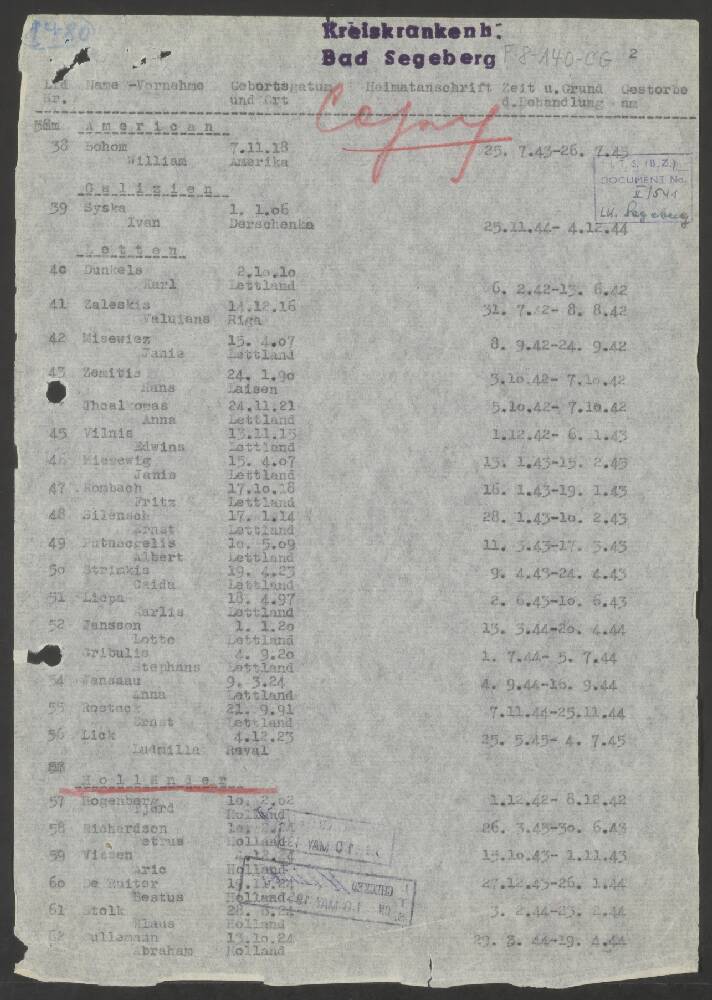 1480
Kreiskrankenh.
Bad Segeberg F-8-140-CG 2
Lfd Name -Vorname Geburtsgatum Heimatanschrift Zeit u.Grund Gestorbe
Nr. und Ort d.Behandlung am
Copy
American
38 Bohom 7.11.18 25. 7.43-26. 7.43
William Amerika
I.T.S. (B.Z.)
DOCUMENT No.
Galizien
39 Syska 1. 1.06
LK. Segeberg
Ivan Derschenka 25.11.44- 4.12.44
Letten
40 Dunkels 2.10.10
Karl Lettland 6. 2.42-13. 6.42
41 Zaleskis 14.12.16 31. 7.42- 8. 8.42
Valuians Riga
42 Misewiez 15. 4.07 8. 9.42-24. 9.42
Janis Lettland
43 Zemitis 24. 1.90 3.10.42- 7.10.42
Hans Laisen
24.11.21 5.10.42- 7.10.42
Anna Lettland
45 Vilnis 13.11.15 1.12.42- 6. 1.43
Edwins Lettland
46 Miesewig 15. 4.07 13. 1.43-15. 2.43
Janis Lettland
47 Rombach 17.10.18 16. 1.43-19. 1.43
Fritz Lettland
48 17. 1.14 28. 1.43-10. 2.43
Ernst Lettland
49 10. 5.09 11. 3.43-17. 3.43
Albert Lettland
50 Strinkis 19. 4.23 9. 4.43-24. 4.43
Lettland
51 Liepa 18. 4.97 2. 6.43-10. 6.43
Karlis Lettland
52 Jansson 1. 1.20 13. 3.44-20. 4.44
Lotte Lettland
Gribulis 4. 9.20 1. 7.44- 5. 7.44
Stephans Lettland
54 Jansaau 9. 3.24 4. 9.44-16. 9.44
Anna Lettland
55 Rostock 21. 9.91 7.11.44-25.11.44
Ernst Lettland
56 Lick 4.12.23 25. 5.45- 4. 7.45
Ludmilla Raval
Holländer
57 Rogenberg 10. 2.02 1.12.42- 8.12.42
Tjerd Holland
58 Richardson 26. 3.43-30. 6.43
Petrus Holland
59 Viesen 14.10.43- 1.11.43
Aric Holland
60 De Ruiter 27.12.43-26. 1.44
Bestus Holland
CHECKED
61 Stolk 3. 2.44-23. 2.44
Klaus Holland
62 Cullemann 13.10.24 29. 3. 44-19. 4.44
Abraham Holland